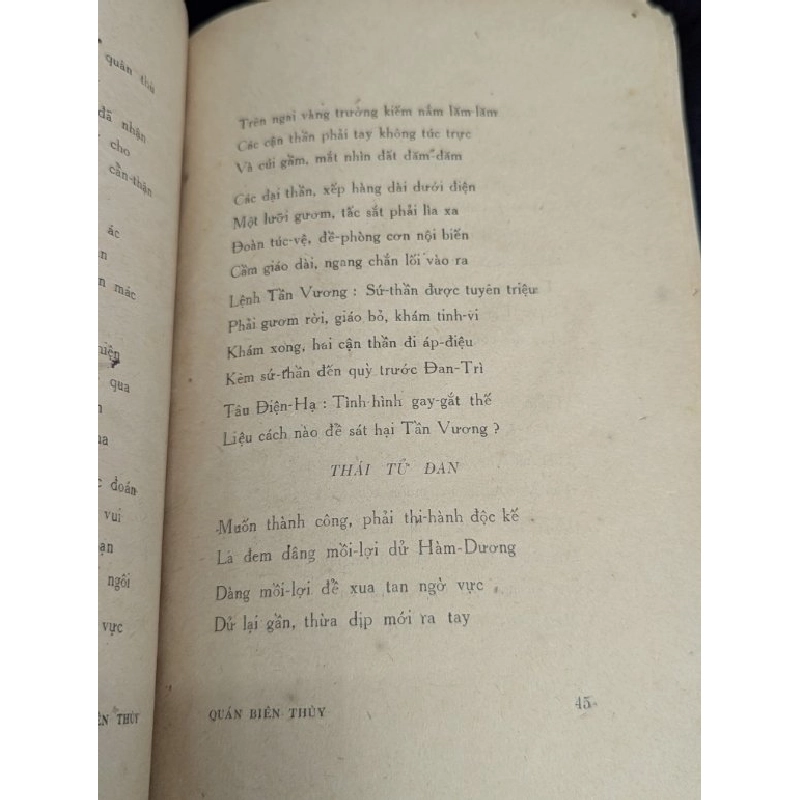 quân thù
đã nhận
cho
cần-thận
ác
n mác
qua
đoán
vui
ngôi
vực
ÊN THÙY
Trên ngai vàng trường kiếm nắm lăm-lăm
Các cận thần phải tay không túc trực
Và cúi gầm, mắt nhìn đất đăm-đăm
Các đại thần, xếp hàng dài dưới điện
Một lưỡi gươm, tấc sắt phải lìa xa
Đoàn túc-vệ, đề-phòng cơn nội biến
Cầm giáo dài, ngang chắn lối vào ra
Lệnh Tần Vương : Sứ-thần được tuyên triệu
Phải gươm rời, giáo bỏ, khám tinh-vi
Khám xong, hai cận thần đi áp-điệu
Kèm sứ-thần đến quỳ trước Đan-Trì
Tâu Điện-Hạ : Tình hình gay-gắt thế
Liệu cách nào đề sát hại Tần Vương ?
THÁI TỬ ĐAN
Muốn thành công, phải thi-hành độc kế
Là đem dâng mồi-lợi dử Hàm-Dương
Dàng mồi-lợi đề xua tan ngờ vực
Dử lại gần, thừa dịp mới ra tay
QUÁN BIÊN THÙY
45